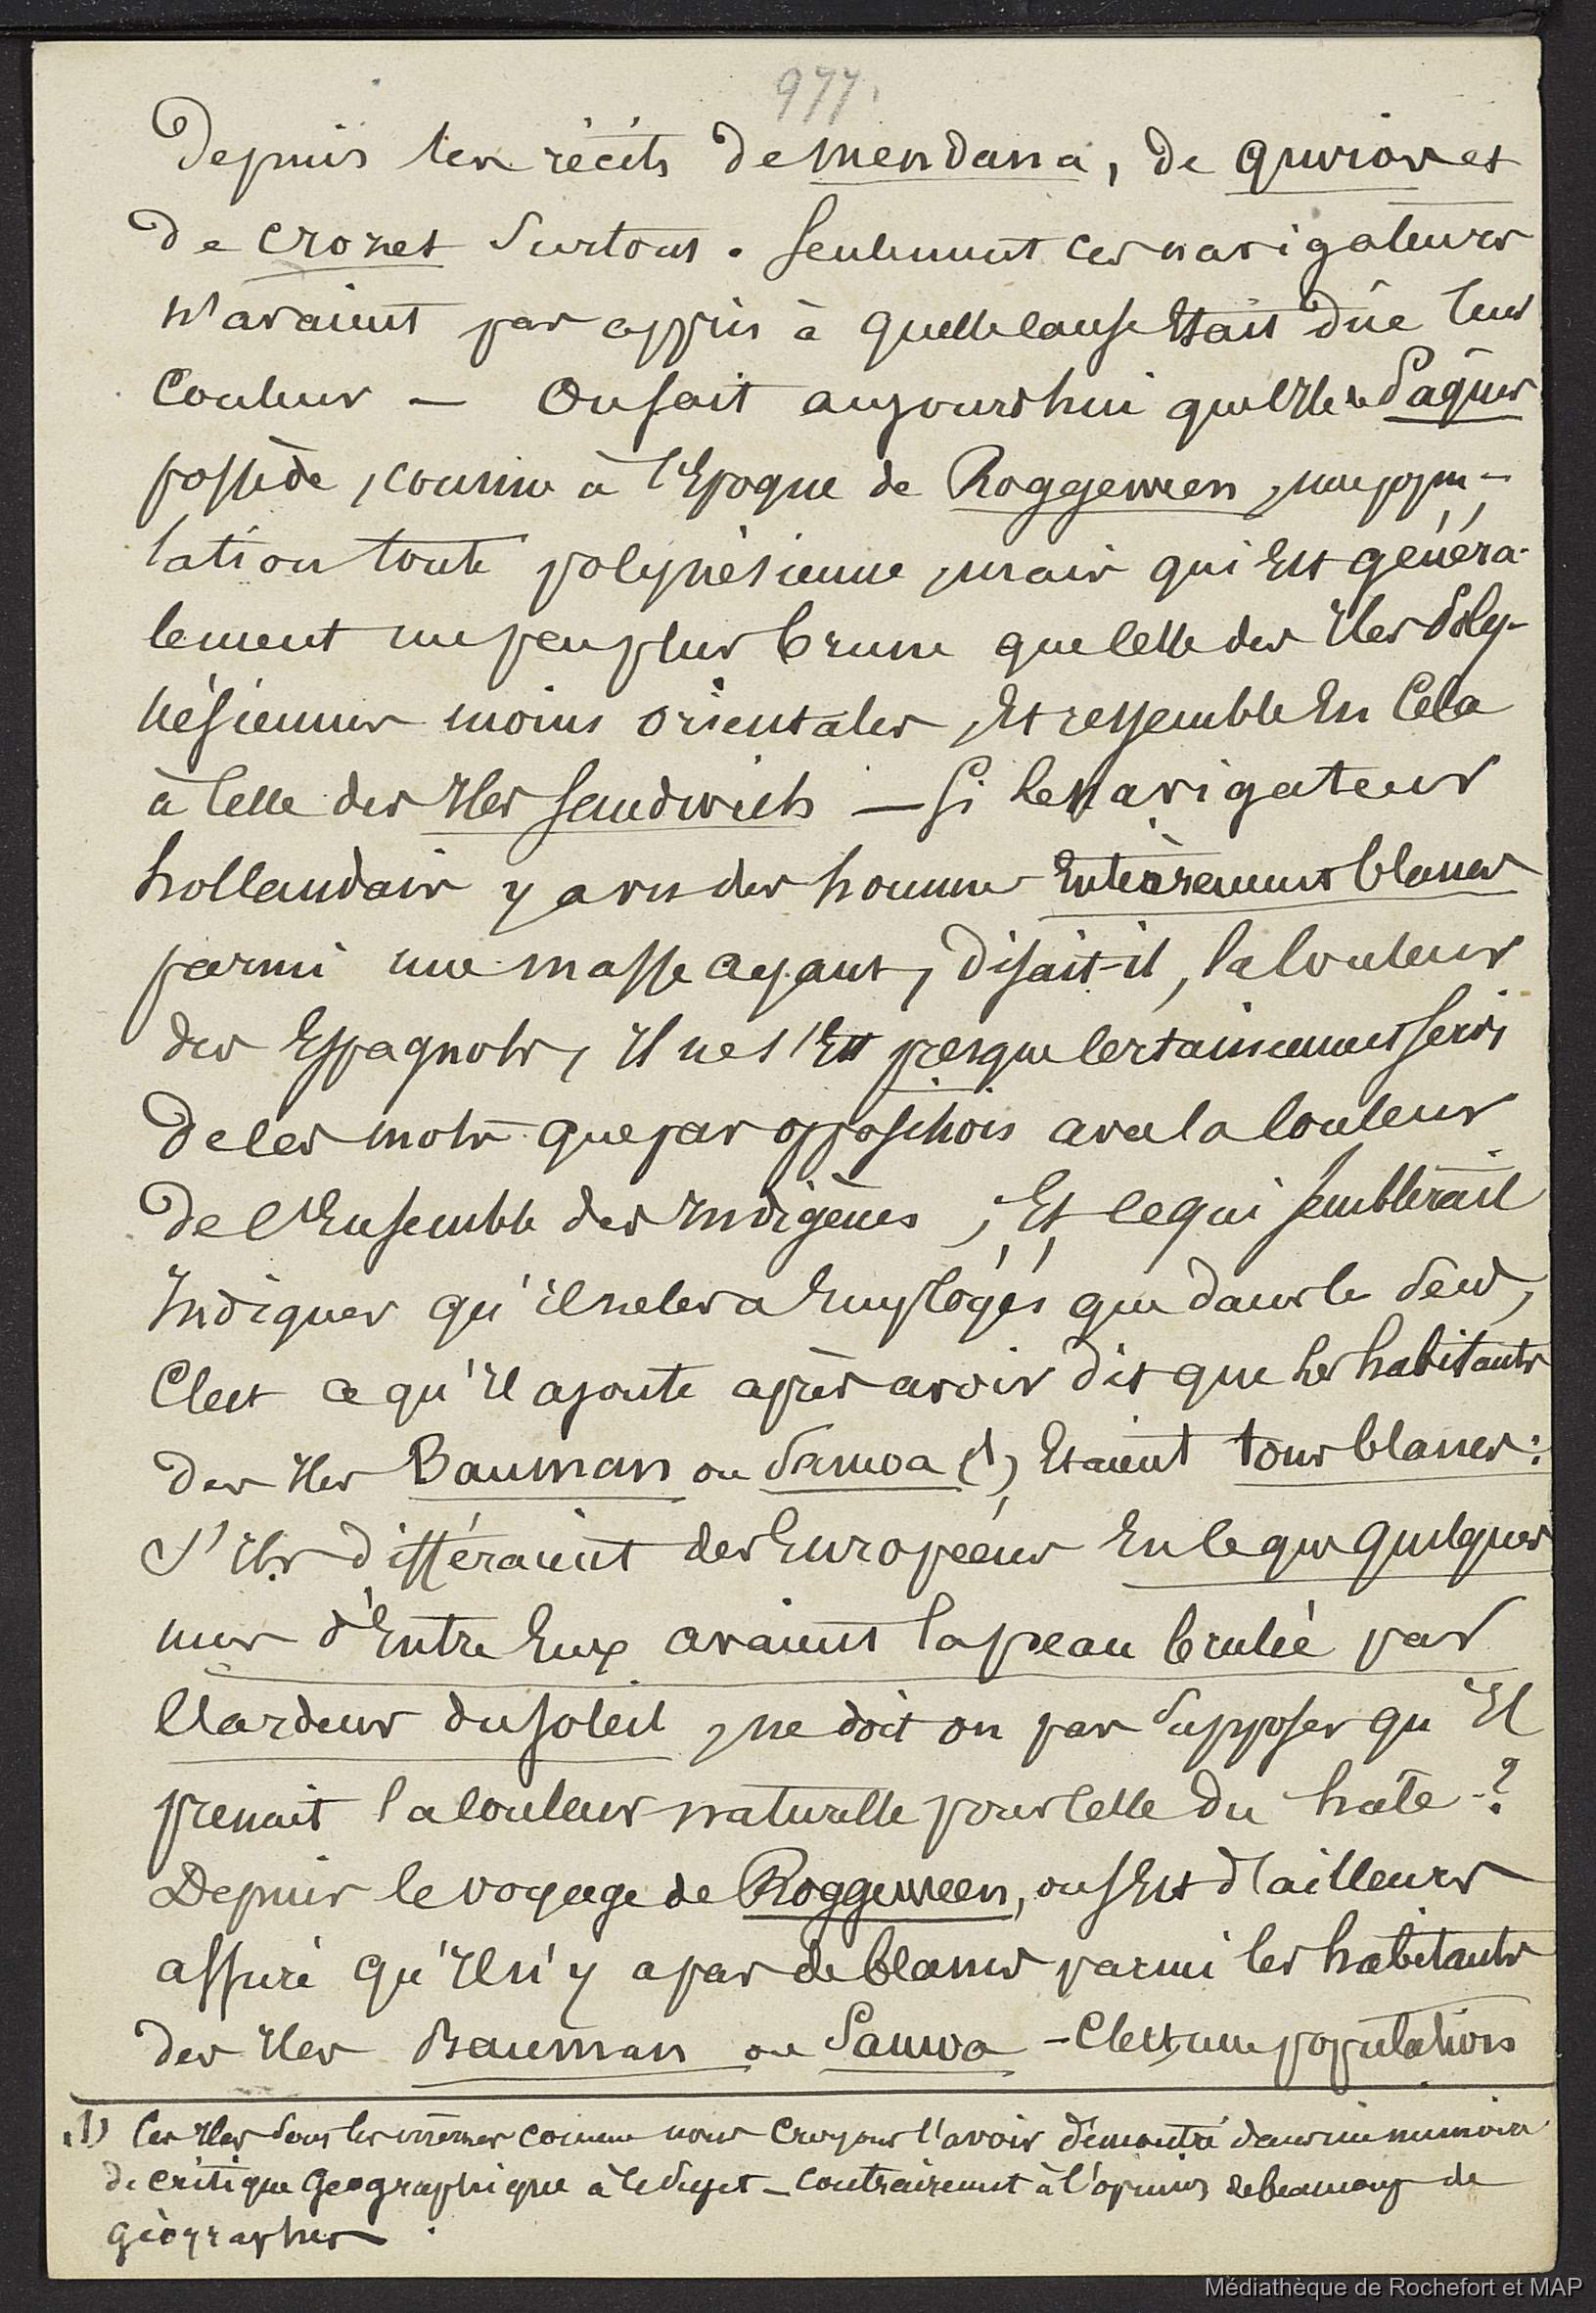 977.
Depuis les récits de Mendana, de Quiros et
de Crozet surtout. Seulement ces navigateurs
n'avaient pas appris à quelle cause était dûe leur
couleur — On sait aujourdhui que l'Ile de Pâques
possède, comme à l'Epoque de Roggeween, une popu-
lation toute polynésienne, mais qui Est généra-
lement un peu plus brune que celle des Iles Poly-
nésiennes moins orientales, Et ressemble En Cela
à celle des Iles Sandwich — Si le Navigateur
hollandais y a vu des hommes Entièrement blancs
parmi une masse ayant, disait-il, la couleur
des Espagnols, Il ne s'Est presque certainement servi
de ces mots que par opposition avec la couleur
de l'Ensemble des Indigènes ; Et ce qui semblerait
Indiquer qu'il ne les a Employés que dans le sens,
C'est ce qu'Il ajoute après avoir dit que les habitants
des Iles Bauman ou Samoa (1) Etaient tous blancs :
S'Ils différaient des Européens En ce que quelques
uns d'Entre Eux avaient la peau brulée par
l'ardeur du soleil, ne doit on pas supposer qu'Il
prenait la couleur naturelle pour celle du hâle ?
Depuis le voyage de Roggeween, on s'Est d'ailleurs
assuré qu'Il n'y a pas de blancs parmi les habitants
des Iles Bauman ou Samoa — C'est une population
(1) Ces Iles sont les mêmes comme nous Croyons l'avoir démontré dans un mémoire
de critique Géographique à ce sujet — Contrairement à l'opinion de beaucoup de
géographes.
Médiathèque de Rochefort et MAP